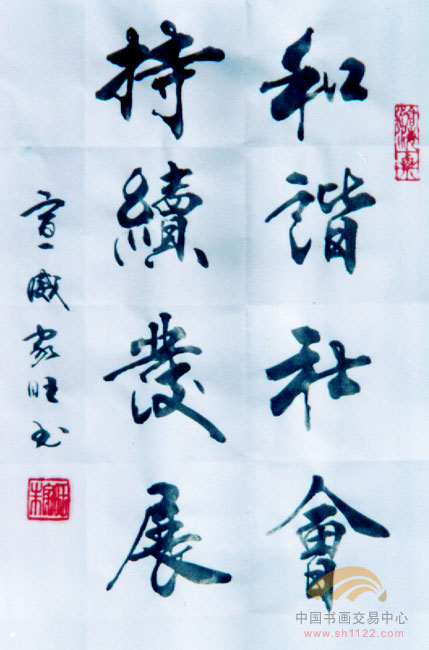 和諧社會
持續發展
宣威家旺书
中国书画交易中心
www.sh1122.com